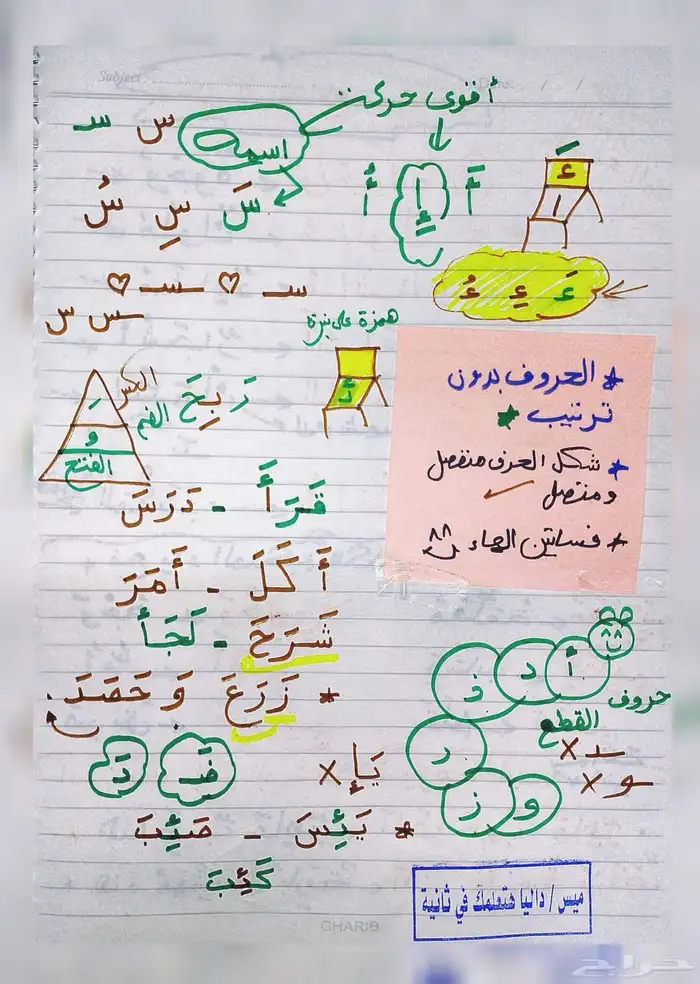 Subject:
Date: / /
أقوى حركة
اسمه
س سـ
أَ إِ أُ
ءَ
ا
سَ سِ سُ
ءَ ءِ ءُ
سـ ♡ ـسـ ♡
ـس س
همزة على نبرة
* الحروف بدون
ترتيب *
* شكل الحرف منفصل
ومتصل ✓
* فساتين الهاء
الكسر
رَبِحَ
الضم
و
الفتح
قَرَأَ - دَرَسَ
أَكَلَ - أَمَرَ
شَرَحَ - لَجَأَ
* زَرَعَ وَ حَصَدَ.
أ د ذ ر ز و
حروف
القطع
ـد x
ـو x
يَإِ x
* يَئِسَ -
كَئِبَ
ميس / داليا هتعلمك في ثانية
GHARIB
حراج